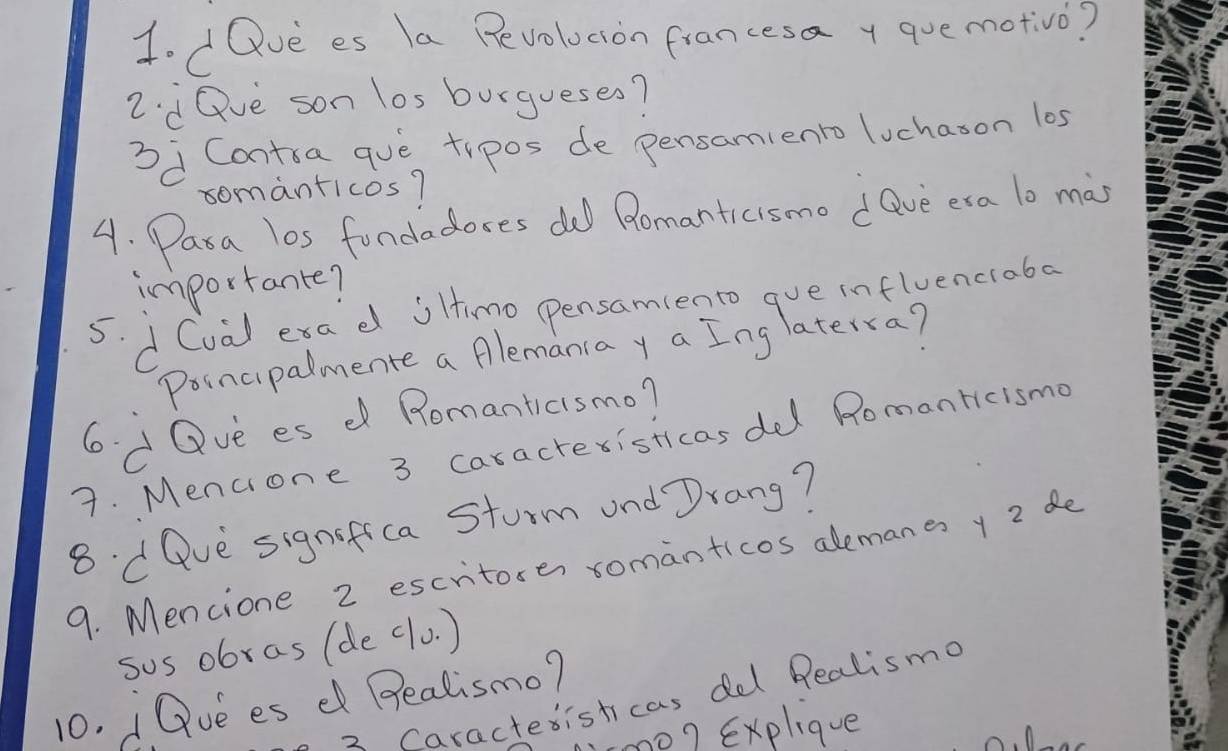 1. ¿Qué es la Revolución francesa y que motivó?
2. ¿Qué son los burgueses?
3 ¿Contra qué tipos de pensamiento lucharon los
románticos?
4. Para los fundadores del Romanticismo ¿Qué era lo más
importante?
5. ¿Cuál era el último pensamiento que influenciaba
Principalmente a Alemania y a Inglaterra?
6. ¿Qué es el Romanticismo?
7. Mencione 3 características del Romanticismo
8. ¿Qué significa Sturm und Drang?
9. Mencione 2 escritores románticos alemanes y 2 de
sus obras (de c/u.)
10. ¿Qué es el Realismo?
3 características del Realismo
Explique